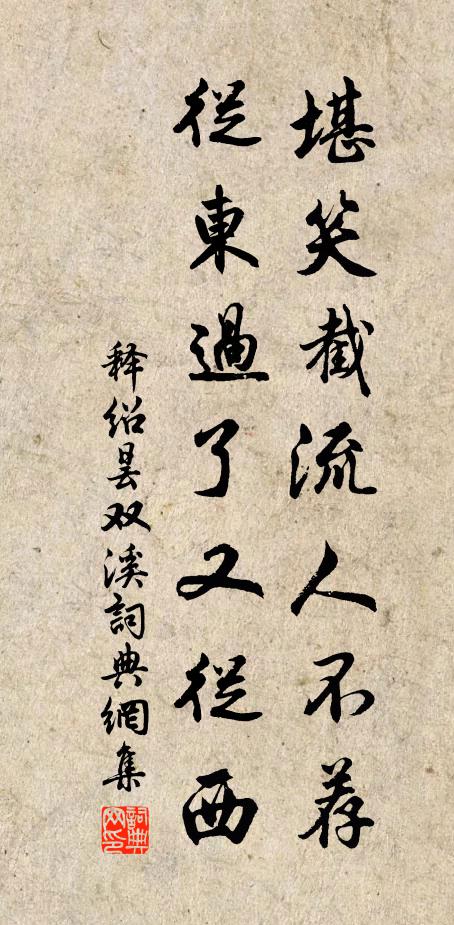 堪笑截流人不荐
從東過了又從西
释绍昙双溪詞典網集
詞典网印